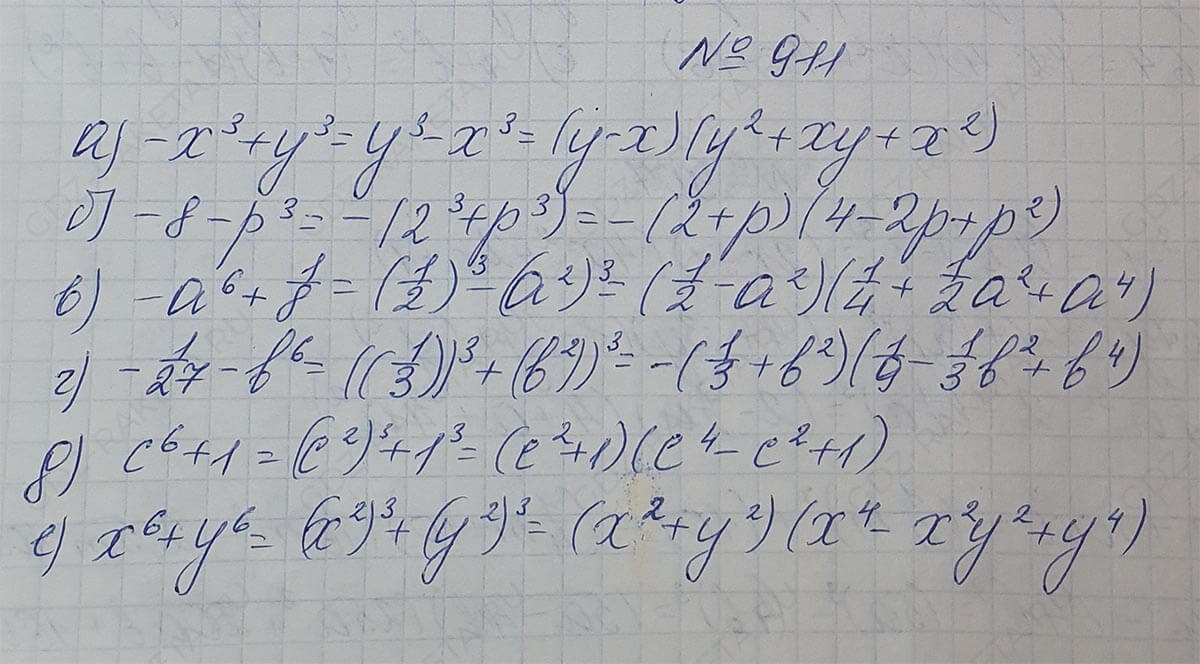 № 911
а) -x³+y³=y³-x³=(y-x)(y²+xy+x²)
б) -8-p³=-(2³+p³)=-(2+p)(4-2p+p²)
в) -a⁶+1/8=(1/2)³-(a²)³=(1/2-a²)(1/4+1/2a²+a⁴)
г) -1/27-b⁶=((1/3))³+(b²))³=-(1/3+b²)(1/9-1/3b²+b⁴)
д) c⁶+1=(c²)³+1³=(c²+1)(c⁴-c²+1)
е) x⁶+y⁶=(x²)³+(y²)³=(x²+y²)(x⁴-x²y²+y⁴)